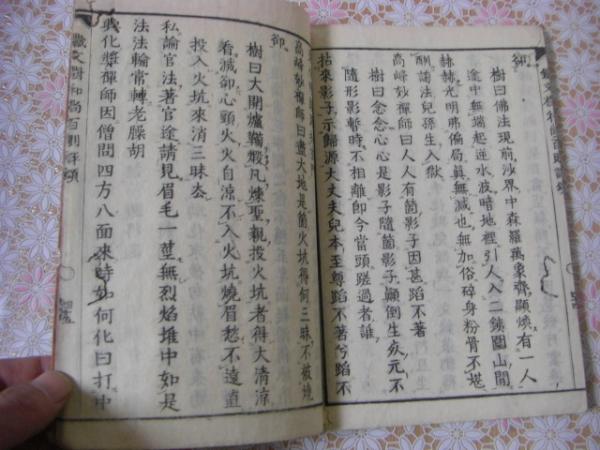 卻
樹曰佛法現前沙界中森羅萬象齊顯煥有一人
途中無端起迷水波暗地裡引人入二鐵圍山間
赫赫光明弗偏局員無減也無加俗碎身粉骨不堪
酬謗法兒孫生入獄
高峰妙禪師曰人人有箇影子因甚蹈不著
樹曰念念心心是影子隨箇影子顚倒生亥元不
隨形影暫時不相離卽今當頭蹉過者誰
拈來影子示歸源大丈夫兒本至尊蹈不著兮蹈不
卻
高峰妙禪師曰盡大地是箇火坑得何三昧不被燒
樹曰大開爐鞴煅凡煉聖親投火坑者得大清凉
看滅卻心頭火自涼不入火坑燒眉愁不遠直
投入火坑來消三昧去
私諭官法著官途請見眉毛一莖無烈焰堆中如是
法法輪常轉老臊胡
興化獎禪師因僧問四方八面來時如何化曰打中
鐵文樹和尚百則評頌